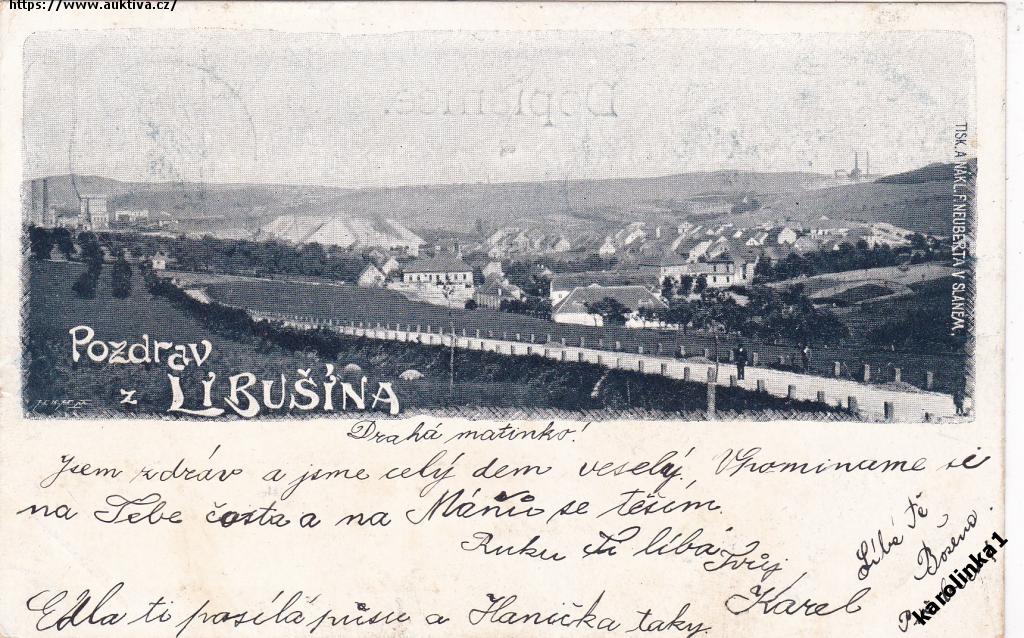 https://www.auktiva.cz/
Dopisnice.
TISK. A NÁKL. F. NEUBERTA V SLANÉM.
Pozdrav
z LIBUŠÍNA
Drahá matinko!
Jsem zdráv a jsme celý dem veselý. Vpomináme si
na Tebe často a na Máňu se těším.
Ruku Ti líbá Tvůj
Karel
Líbá Tě
Božena.
Edla ti posílá pusu a Hanička taky.
karolinka1